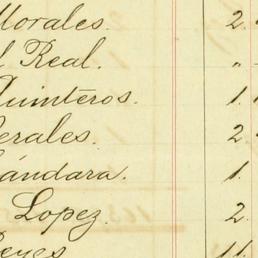 Morales. 2.
l Real. "
Quinteros. 1.
erales. 2
ándara. 1.
Lopez. 2.
Reyes 11